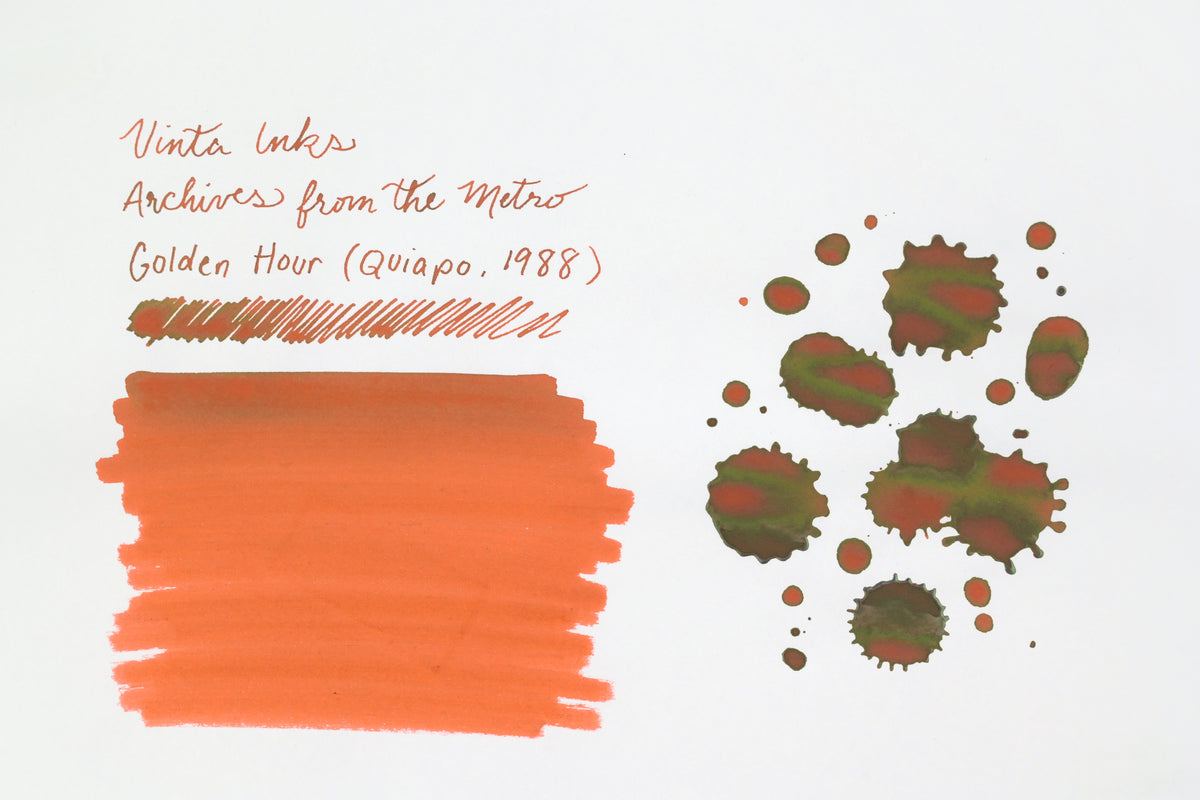 Vinta Inks
Archives from the Metro
Golden Hour (Quiapo, 1988)